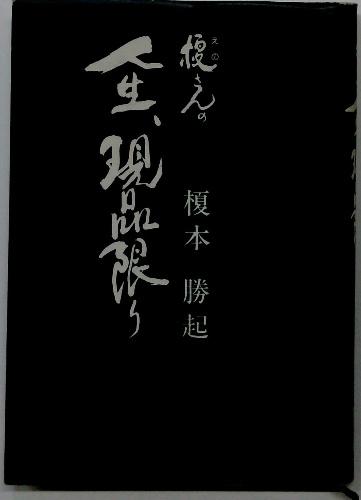 榎さんの
えの
人生、現品限り
榎本 勝起